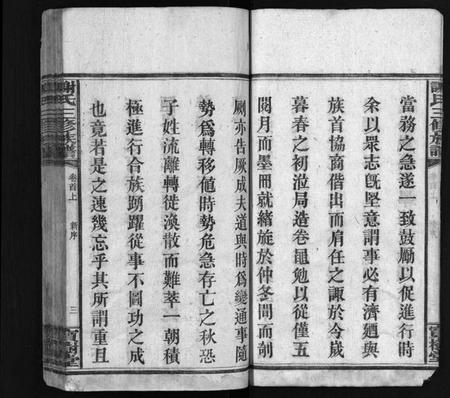 謝氏三修族譜
當務之急遂一致鼓勵以促進行時
余以眾志既堅意謂事必有濟廼與
族首協商偕出而肩任之諏於今歲
暮春之初涖局造卷黽勉以從僅五
閱月而墨冊就緒旋於仲冬間而剞
劂亦告厥成夫道與時為變通事隨
勢為轉移値時勢危急存亡之秋恐
子姓流離轉徙渙散而難萃一朝積
極進行合族踴躍從事不圖功之成
也竟若是之速幾忘乎其所謂重且
謝氏三修族譜
卷首上
新序
三
寶樹堂